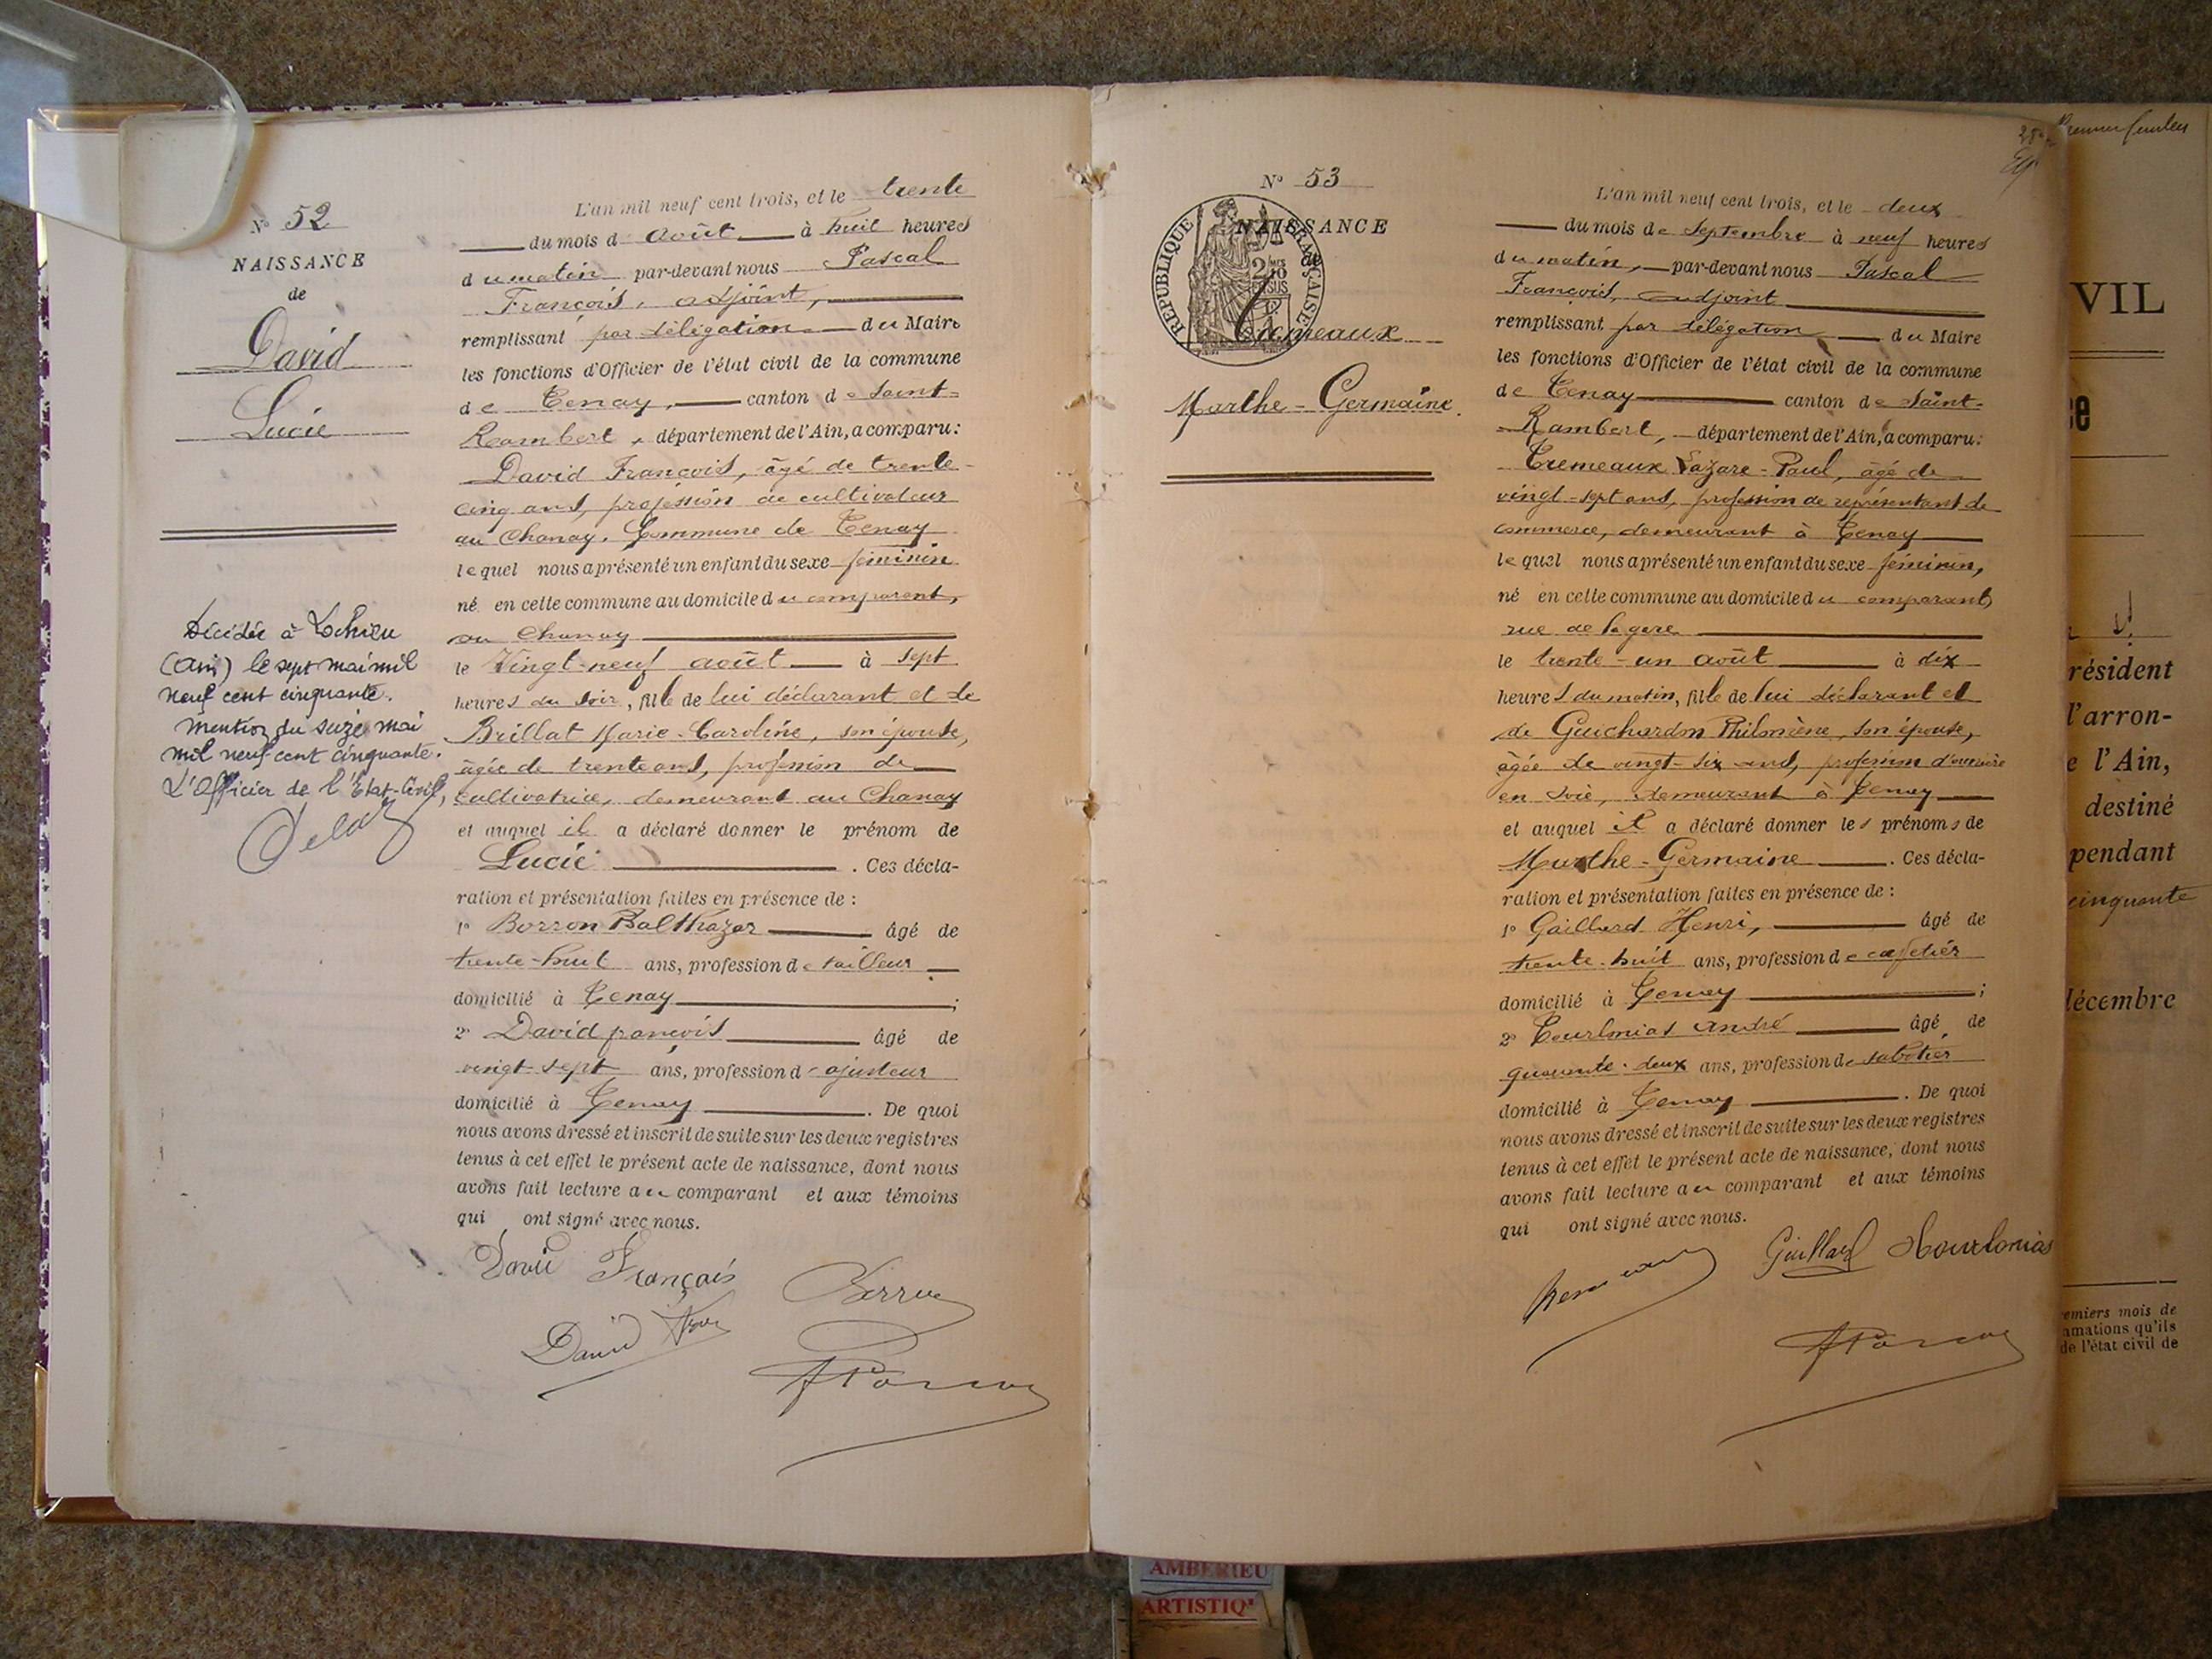 N° 52
NAISSANCE
de
David
Lucie
Décédée à Lohieu
(Ain) le sept mai mil
neuf cent cinquante.
Mention du seize mai
mil neuf cent cinquante.
L'Officier de l'Etat-Civil,
L'an mil neuf cent trois, et le trente
du mois d août à huit heures
du matin par-devant nous Pascal
François, adjoint,
remplissant par délégation du Maire
les fonctions d'Officier de l'état civil de la commune
de Tenay, canton de Saint-
Rambert, département de l'Ain, a comparu:
David François, âgé de trente-
cinq ans, profession de cultivateur
au Chanay, Commune de Tenay
lequel nous a présenté un enfant du sexe féminin
né en cette commune au domicile du comparant,
au Chanay
le Vingt-neuf août à sept
heures du soir, fille de lui déclarant et de
Brillat Marie-Caroline, son épouse,
âgée de trente ans, profession de
cultivatrice, demeurant au Chanay
et auquel il a déclaré donner le prénom de
Lucie. Ces décla-
ration et présentation faites en présence de :
1° Borron Balthazar âgé de
trente-huit ans, profession de tailleur
domicilié à Tenay ;
2° David françois âgé de
vingt-sept ans, profession d'ajusteur
domicilié à Tenay. De quoi
nous avons dressé et inscrit de suite sur les deux registres
tenus à cet effet le présent acte de naissance, dont nous
avons fait lecture au comparant et aux témoins
qui ont signé avec nous.
David Français
David
N° 53
NAISSANCE
de
RÉPUBLIQUE FRANÇAISE
Tremeaux
Marthe-Germaine.
L'an mil neuf cent trois, et le deux
du mois de Septembre à neuf heures
du matin, par-devant nous Pascal
François, adjoint
remplissant par délégation du Maire
les fonctions d'Officier de l'état civil de la commune
de Tenay canton de Saint-
Rambert, département de l'Ain, a comparu:
Tremeaux Lazare-Paul, âgé de
vingt-sept ans, profession de représentant de
commerce, demeurant à Tenay
lequel nous a présenté un enfant du sexe féminin,
né en cette commune au domicile du comparant,
rue de la gare
le trente-un août à dix
heures du matin, fille de lui déclarant et
de Guichardon Philomène, son épouse,
âgée de vingt-six ans, profession d'ouvrière
en soie, demeurant à Tenay
et auquel il a déclaré donner les prénoms de
Marthe-Germaine. Ces décla-
ration et présentation faites en présence de :
1° Gaillard Henri, âgé de
trente-huit ans, profession de cafetier
domicilié à Tenay ;
2° Courlonias André âgé de
quarante-deux ans, profession de sabotier
domicilié à Tenay. De quoi
nous avons dressé et inscrit de suite sur les deux registres
tenus à cet effet le présent acte de naissance, dont nous
avons fait lecture au comparant et aux témoins
qui ont signé avec nous.
Gaillard
Premier feuillet
VIL
résident
l'arron-
e l'Ain,
destiné
pendant
cinquante
décembre
emiers mois de
amations qu'ils
de l'état civil de
AMBERIEU
ARTISTIQ